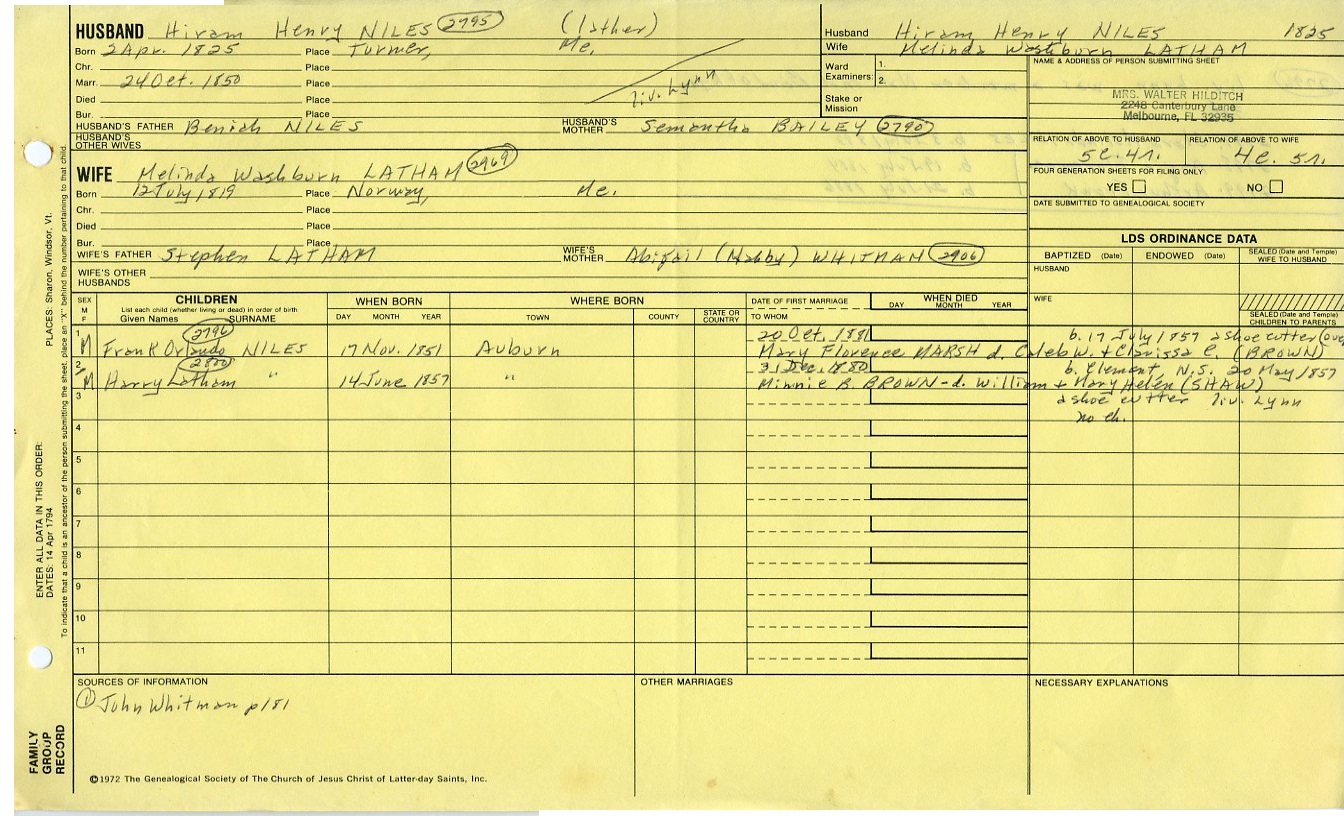 HUSBAND Hiram Henry NILES 2795 (lather)
Born 2 Apr. 1825 Place Turner, Me.
Chr. Place
Marr. 24 Oct. 1850 Place
liv. Lynn
Died Place
Bur. Place
HUSBAND'S FATHER Beniah NILES HUSBAND'S MOTHER Semantha BAILEY 2790
HUSBAND'S OTHER WIVES
WIFE Melinda Washburn LATHAM 2969
Born 12 July 1819 Place Norway, Me.
Chr. Place
Died Place
Bur. Place
WIFE'S FATHER Stephen LATHAM WIFE'S MOTHER Abigail (Nabby) WHITMAN 2906
WIFE'S OTHER HUSBANDS
Husband Hiram Henry NILES 1825
Wife Melinda Washburn LATHAM
Ward Examiners: 1.
2.
Stake or Mission
NAME & ADDRESS OF PERSON SUBMITTING SHEET
MRS. WALTER HILDITCH
2248 Canterbury Lane
Melbourne, FL 32935
RELATION OF ABOVE TO HUSBAND RELATION OF ABOVE TO WIFE
5c. 4r. 4c. 5r.
FOUR GENERATION SHEETS FOR FILING ONLY
YES NO
DATE SUBMITTED TO GENEALOGICAL SOCIETY
LDS ORDINANCE DATA
BAPTIZED (Date) ENDOWED (Date) SEALED (Date and Temple) WIFE TO HUSBAND
HUSBAND
WIFE
SEALED (Date and Temple) CHILDREN TO PARENTS
SEX M F CHILDREN WHEN BORN WHERE BORN DATE OF FIRST MARRIAGE WHEN DIED
List each child (whether living or dead) in order of birth
Given Names SURNAME DAY MONTH YEAR TOWN COUNTY STATE OR COUNTRY TO WHOM DAY MONTH YEAR
1 2796 20 Oct. 1881 b. 17 July 1857 a shoe cutter (over)
M Frank Orlando NILES 17 Nov. 1851 Auburn Mary Florence MARSH d. Caleb W. + Clarissa C. (BROWN)
2 2800 31 Dec. 1880 b. Clement, N.S. 20 May 1857
M Harry Latham " 14 June 1857 " Minnie B. BROWN - d. William + Mary Helen (SHAW)
3 a shoe cutter liv. Lynn
no ch.
4
5
6
7
8
9
10
11
SOURCES OF INFORMATION OTHER MARRIAGES NECESSARY EXPLANATIONS
① John Whitman p181
©1972 The Genealogical Society of The Church of Jesus Christ of Latter-day Saints, Inc.
FAMILY GROUP RECORD
ENTER ALL DATA IN THIS ORDER:
DATES: 14 Apr 1794 PLACES: Sharon, Windsor, Vt.
To indicate that a child is an ancestor of the person submitting the sheet, place an "X" behind the number pertaining to that child.